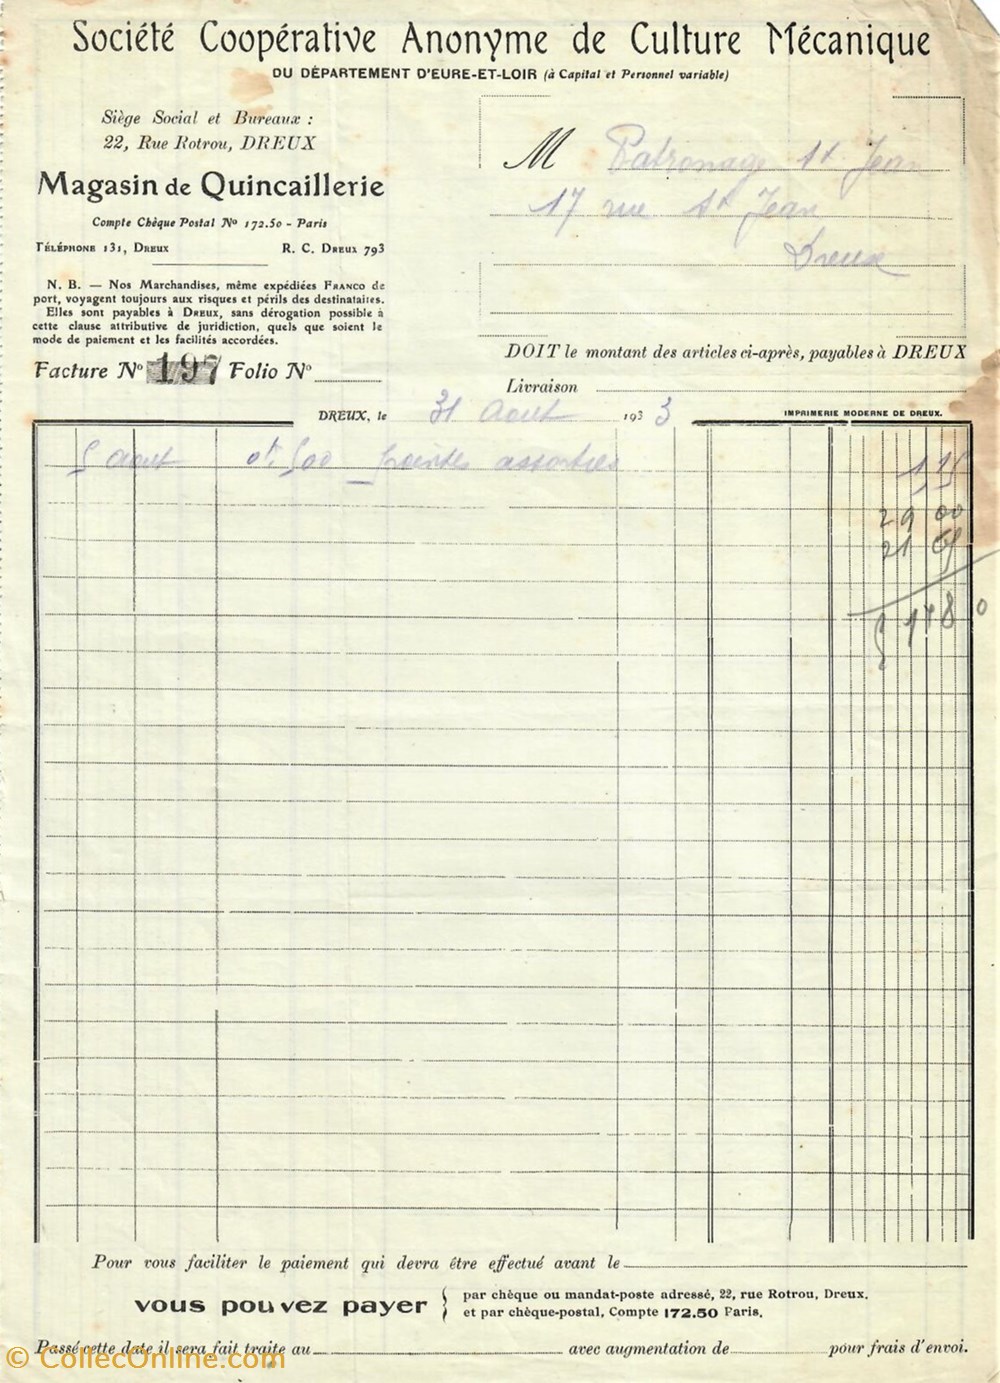 Société Coopérative Anonyme de Culture Mécanique
DU DÉPARTEMENT D'EURE-ET-LOIR (à Capital et Personnel variable)
Siège Social et Bureaux :
22, Rue Rotrou, DREUX
Magasin de Quincaillerie
Compte Chèque Postal No 172.50 - Paris
TÉLÉPHONE 131, DREUX R. C. DREUX 793
N. B. — Nos Marchandises, même expédiées FRANCO de
port, voyagent toujours aux risques et périls des destinataires.
Elles sont payables à DREUX, sans dérogation possible à
cette clause attributive de juridiction, quels que soient le
mode de paiement et les facilités accordées.
Facture No 197 Folio No
M Patronage St Jean
17 rue St Jean
Dreux
DOIT le montant des articles ci-après, payables à DREUX
Livraison
DREUX, le 31 Aout 1933
IMPRIMERIE MODERNE DE DREUX.
5 aout 0k 500 pointes assorties 1 15
29 00
21 65
51 80
Pour vous faciliter le paiement qui devra être effectué avant le
vous pouvez payer { par chèque ou mandat-poste adressé, 22, rue Rotrou, Dreux.
et par chèque-postal, Compte 172.50 Paris.
Passé cette date il sera fait traite au avec augmentation de pour frais d'envoi.
© CollecOnline.com